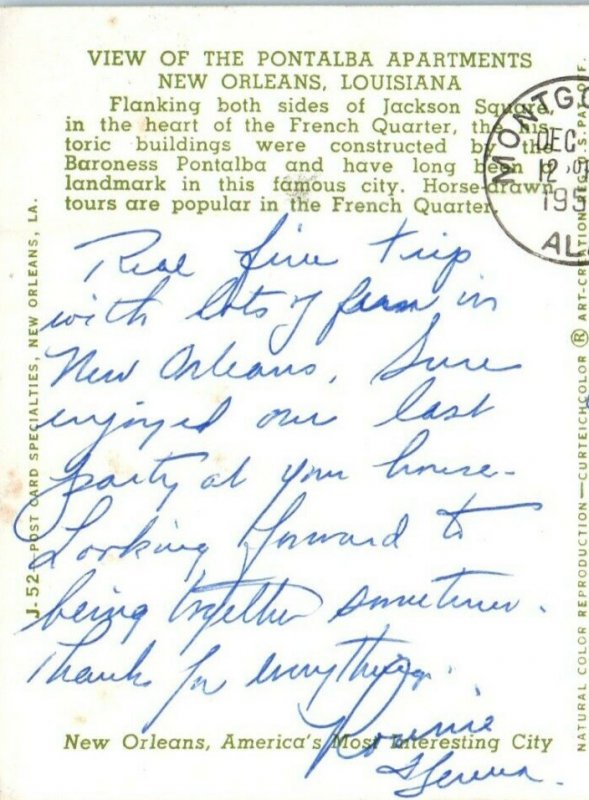 VIEW OF THE PONTALBA APARTMENTS
NEW ORLEANS, LOUISIANA
Flanking both sides of Jackson Square,
in the heart of the French Quarter, the his-
toric buildings were constructed by the
Baroness Pontalba and have long been a
landmark in this famous city. Horse-drawn
tours are popular in the French Quarter.
MONTGO
DEC
12
195
AL
Real fine trip
with lots of fun in
New Orleans. Sure
enjoyed our last
party at your house-
Looking forward to
being together sometime.
Thanks for everything.
Ronnie
New Orleans, America's Most Interesting City
J-52 POST CARD SPECIALTIES, NEW ORLEANS, LA.
NATURAL COLOR REPRODUCTION—CURTEICHCOLOR ® ART-CREATION S. PAT. OFF.